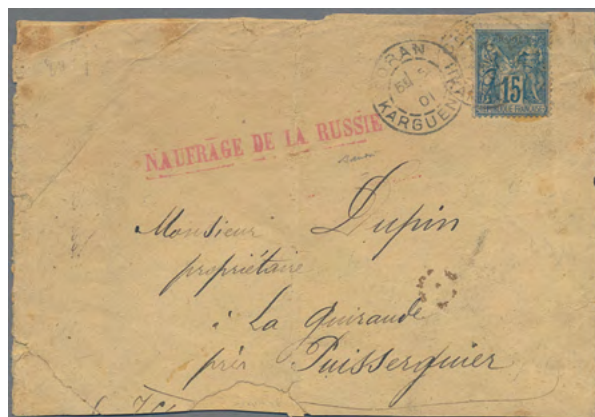 ORAN
KARGUEN
01
15
NAUFRAGE DE LA RUSSIE
Monsieur Dupin
propriétaire
à La Guiraude
près Puisserguier